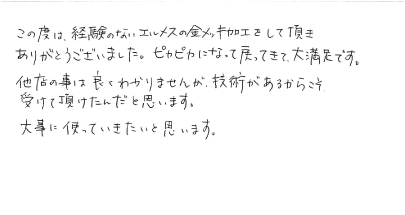 この度は、経験のないエルメスの金メッキ加工をして頂き
ありがとうございました。ピカピカになって戻ってきて、大満足です。
他店の事は良くわかりませんが、技術があるからこそ
受けて頂けたんだと思います。
大事に使っていきたいと思います。